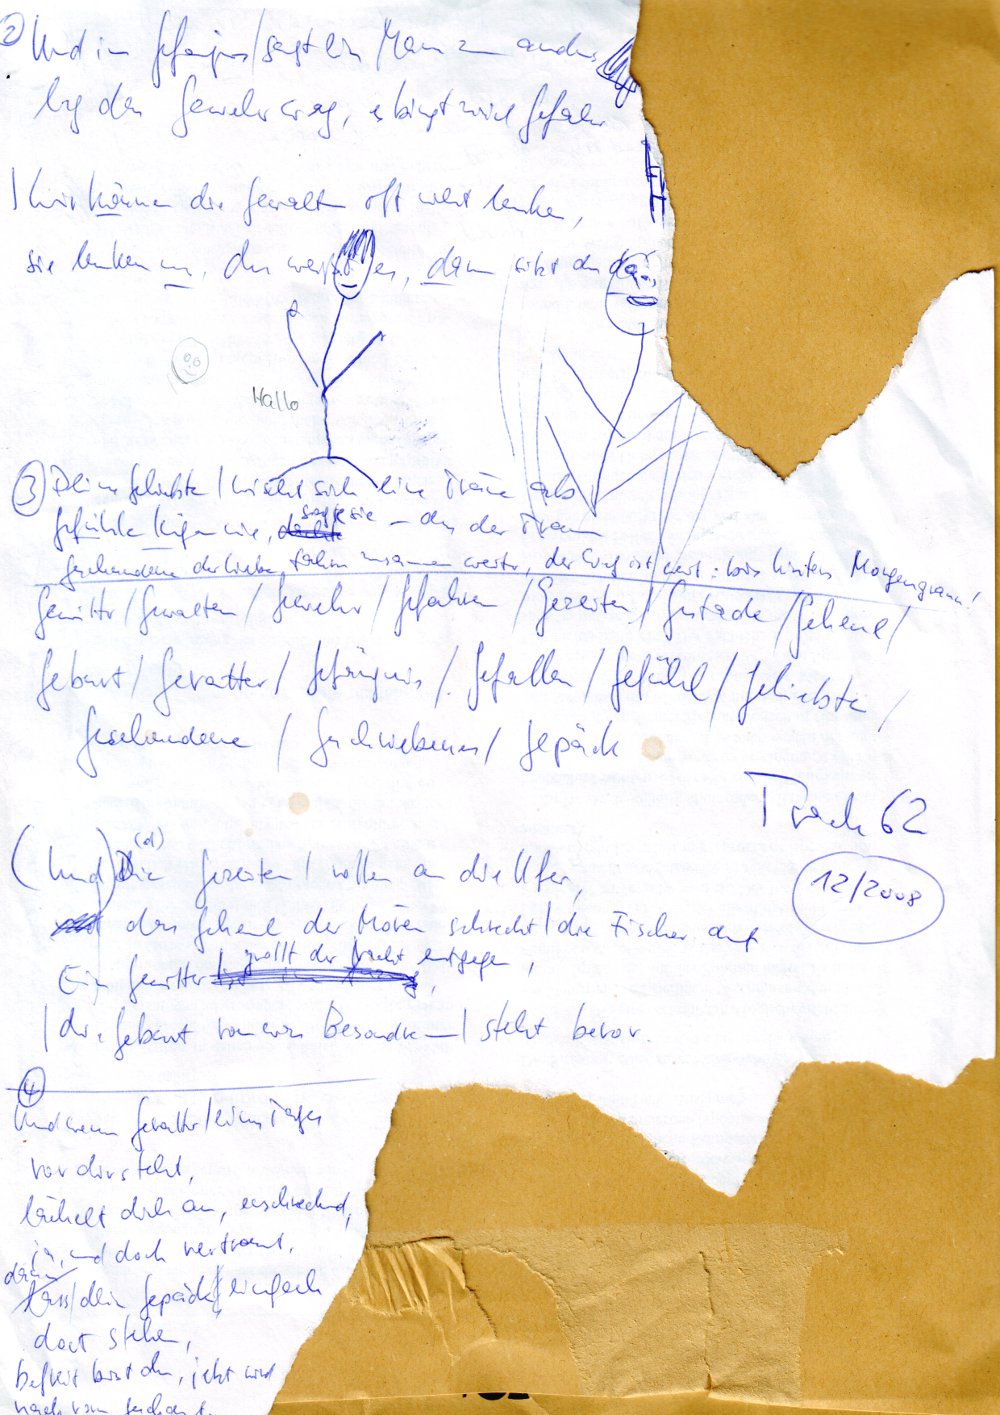 ②
Und im Gefängnis / sagt ein Mann zum andern
leg das Gewehr weg, es bringt zuviel Gefahr
| Wir können die Gewalten oft nicht lenken,
sie lenken uns, du weißt es, dann sitzt du da
Hallo
③ Deine Geliebte / wischt sich eine Träne ab
Gefühle lügen nie, sagte sie – das der Traum
Geschundene der Liebe, fahrn zusammen weiter, der Weg ist weit: bis hinters Morgengraun!
Gewitter / Gewalten / Gewehr / Gefahren / Gezeiten / Gestade / Geheul /
Geburt / Gevatter / Gefängnis / Gefallen / Gefühl / Geliebte /
Geschundene / Geschwebenes / Gepäck
Track 62
12/2008
(Und) Die (d) Gezeiten / rollen an die Ufer,
das Geheul der Möven schreckt / die Fischer auf
Ein Gewitter grollt der Nacht entgegen,
| die Geburt von was Besondrem – | steht bevor.
④
Und wenn Gevatter / eines Tages
vor dir steht,
lächelt dich an, erschreckend,
ja, und doch vertraut,
dann
lass / dein Gepäck / einfach
dort stehen,
befreit bist du, jetzt wird